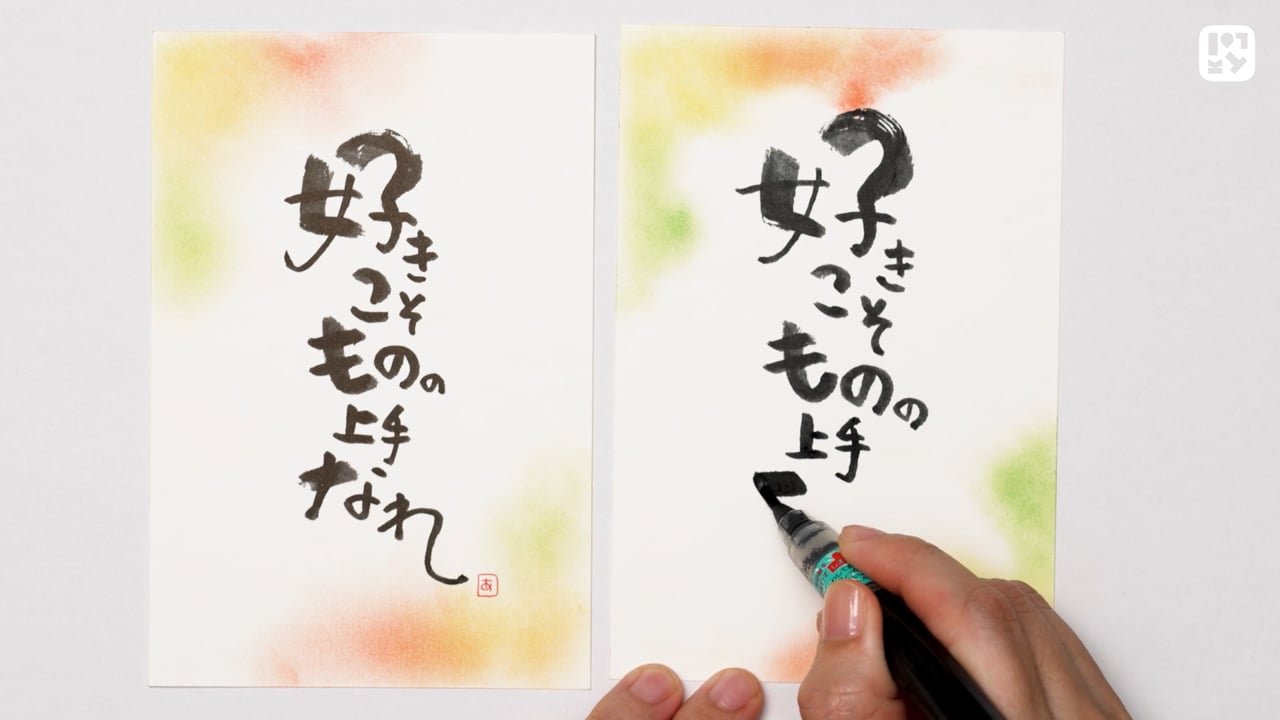 好き
こそ
ものの
上手
なれ
あ
好き
こそ
ものの
上手